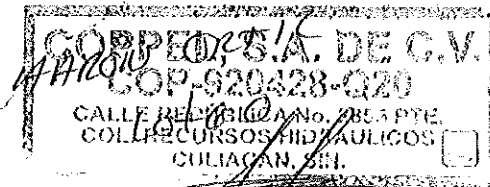 COPPEL, S.A. DE C.V.
COP-920428-Q20
CALLE REPUBLICA No. PTE.
COL. RECURSOS HIDRAULICOS
CULIACAN, SIN.